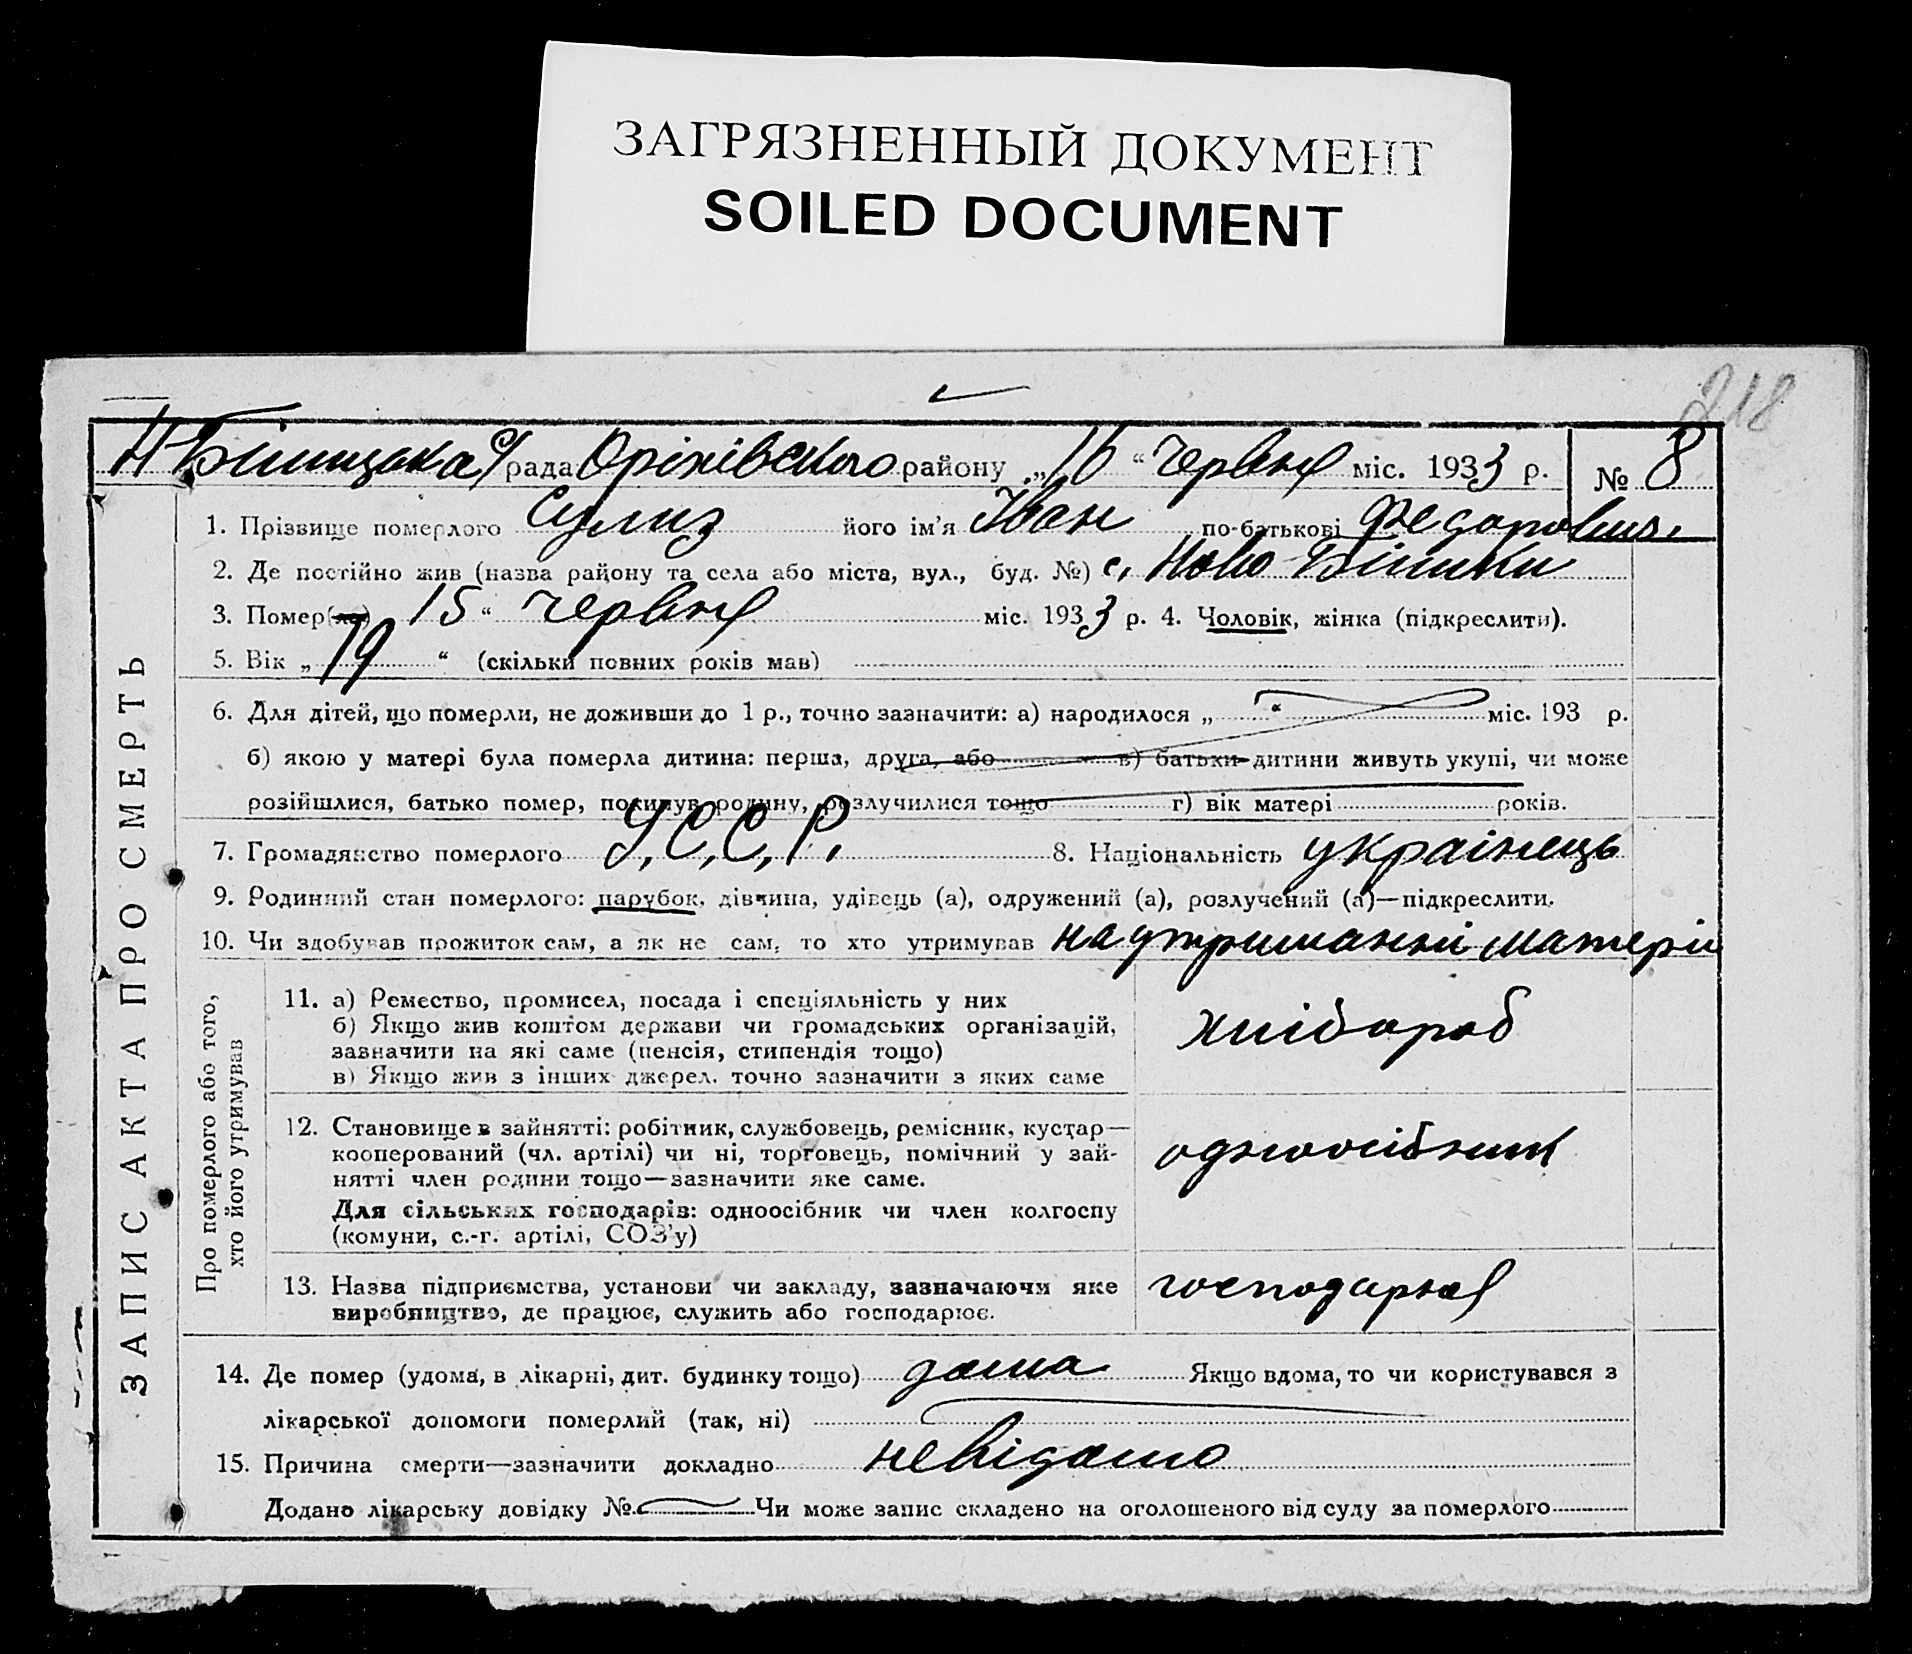 ЗАГРЯЗНЕННЫЙ ДОКУМЕНТ
SOILED DOCUMENT
218
рада Оріхівського району „16“ червня міс. 1933 р. № 8
ЗАПИС АКТА ПРО СМЕРТЬ
1. Прізвище померлого його ім'я Іван по-батькові Федорович.
2. Де постійно жив (назва району та села або міста, вул., буд. №) с. Ново
3. Помер(ла) 15 “ червня міс. 1933 р. 4. Чоловік, жінка (підкреслити).
5. Вік „ 19 “ (скільки повних років мав)
6. Для дітей, що померли, не доживши до 1 р., точно зазначити: а) народилося „ “ міс. 193 р.
б) якою у матері була померла дитина: перша, друга, або в) батьки дитини живуть укупі, чи може
розійшлися, батько помер, покинув родину, розлучилися тощо г) вік матері років.
7. Громадянство померлого У.С.С.Р. 8. Національність украінець
9. Родинний стан померлого: парубок, дівчина, удівець (а), одружений (а), розлучений (а)—підкреслити.
10. Чи здобував прожиток сам, а як не сам, то хто утримував на утриманні матері
Про померлого або того,
хто його утримував
11. а) Ремество, промисел, посада і спеціяльність у них
б) Якщо жив коштом держави чи громадських організацій,
зазначити на які саме (пенсія, стипендія тощо)
в) Якщо жив з інших джерел, точно зазначити з яких саме
хлібороб
12. Становище в зайнятті: робітник, службовець, ремісник, кустар—
кооперований (чл. артілі) чи ні, торговець, помічний у зай-
нятті член родини тощо—зазначити яке саме.
Для сільських господарів: одноосібник чи член колгоспу
(комуни, с.-г. артілі, СОЗ'у)
одноосібник
13. Назва підприємства, установи чи закладу, зазначаючи яке
виробництво, де працює, служить або господарює.
господарює
14. Де помер (удома, в лікарні, дит. будинку тощо) дома Якщо вдома, то чи користувався з
лікарської допомоги померлий (так, ні)
15. Причина смерти—зазначити докладно невідомо
Додано лікарську довідку № Чи може запис складено на оголошеного від суду за померлого